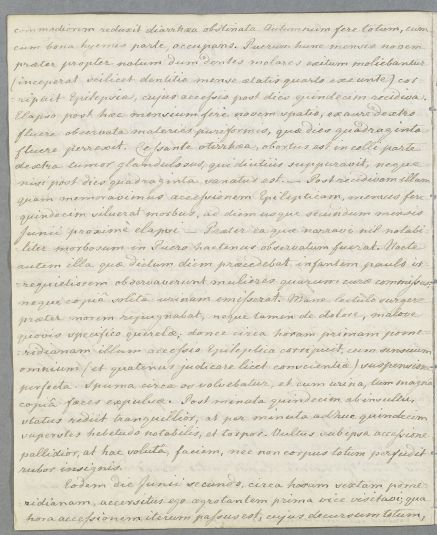 commodiorem reduxit diarrhœa obstinata Autumnum fere totum, cum
cum bona hyemis parte, occupans. Puerum hunc mensis novem
præter propter natum dum dentes molares exitum moliebantur
(inceperat scilicet dentitio mense ætatis quarto exeunte) cor-
ripuit Epilepsia, cujus accessio post dies quindecim recidiva.
Elapso post hac mensium fere novem spatio, ex aure dextra
fluere observata materies puriformis, quæ dies quadraginta
fluere perrexit. Cessante otirrhœa, obortus est in colli parte
dextra tumor glandulosus, qui diutius suppuravit, neque
nisi post dies quadraginta sanatus est. — Post recidivam illam
quam memoravimus accessionem Epilepticam, menses fere
quindecim siluerat morbus, ad diem usque secundum mensis
Junii proxime elapsi — Præter ea quæ narravi nil notabi-
liter morbosum in Puero hactenus observatum fuerat. Nocte
autem illa quæ dictum diem præcedebat infantem paulo ir-
requietiorem observaverunt mulieres quarum curæ commissus,
neque copiâ solitâ urinam emiserat. Mane lectulo surgere
præter morem repugnabat, neque tamen de dolore, malove
quovis specifico querelæ; donec circa horam primam pome-
ridianam illum accessio Epileptica corripuit, cum sensuum
omnium (et quatenus judicare licet conscientiæ) suspensione
perfecta. Spuma circa os volvebatur, et cum urina, tum magna
copiâ fæces expulsæ. Post minuta quindecim ab insultu,
vultus rediit tranquillior, at per minuta adhuc quindecim
superstes hebetudo notabilis, et torpor. Vultus sub ipsa accessione
pallidior, at hac soluta, faciem, nec non corpus totum perfudit
rubor insignis.
Eodem die Junii secundo, circa horam sextam pome-
ridianam, accersitus ego ægrotantem prima vice visitavi; qua
hora accessionem iterum passus est, cujus decursum totum,